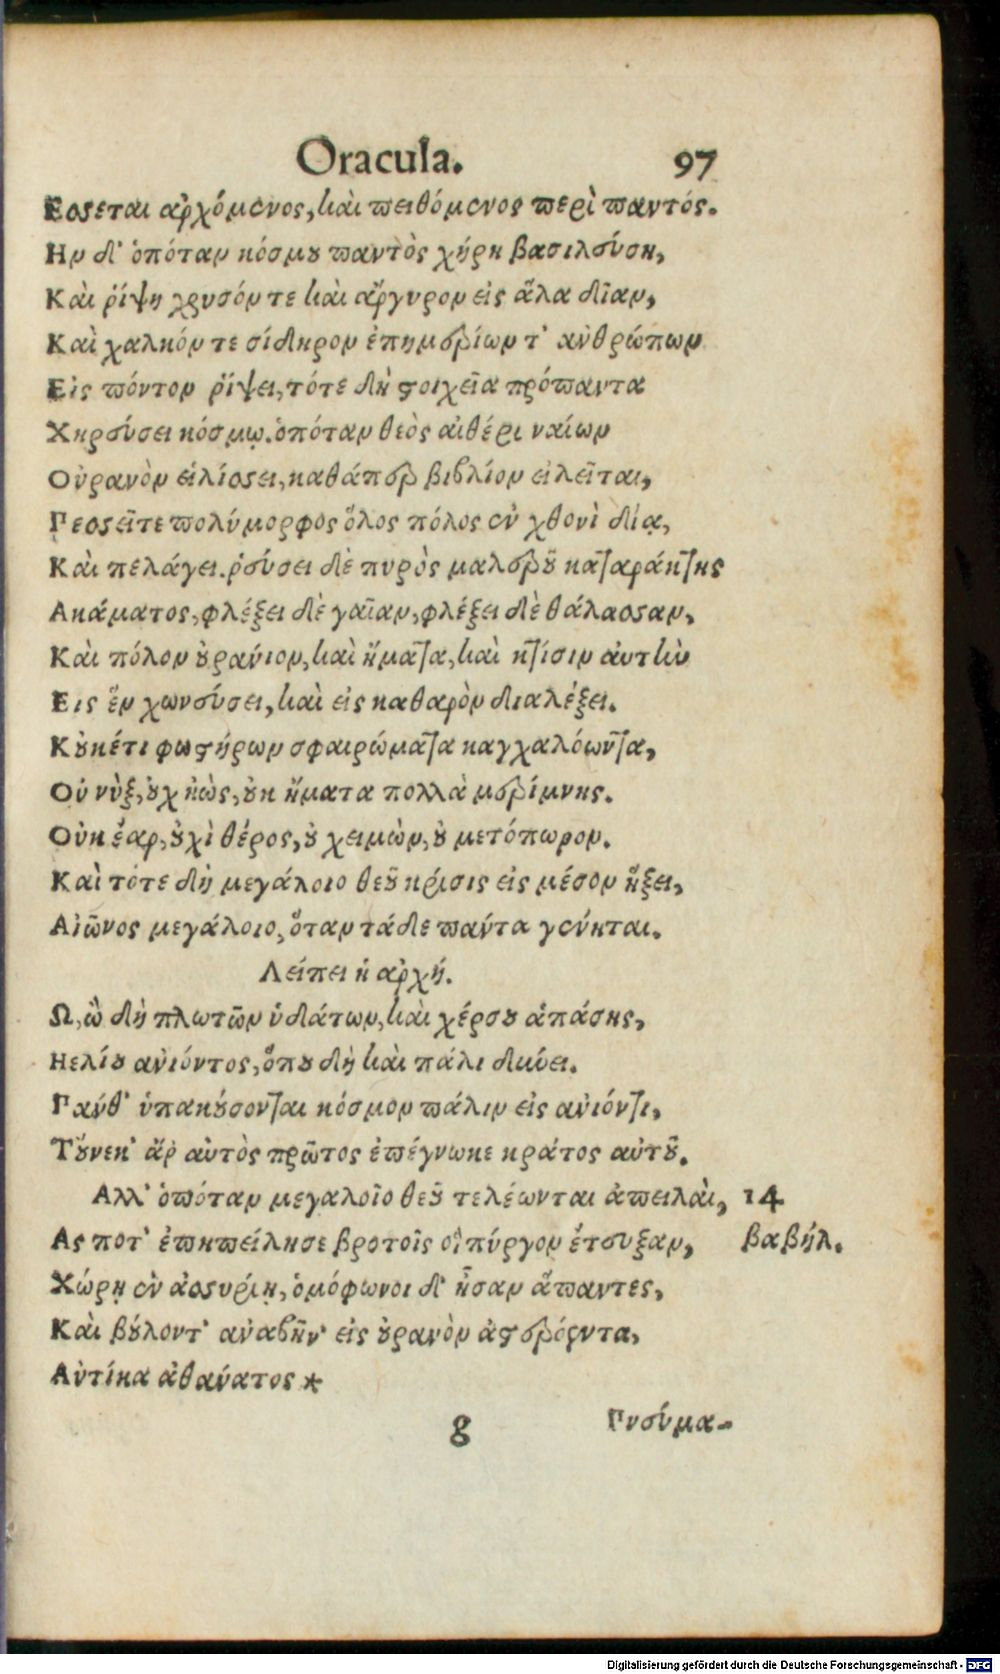 Oracula. 97
Εσσεται ἀρχόμενος, καὶ πειθόμενος περὶ παντός.
Ην δ' ὁπόταν κόσμου παντὸς χήρη βασιλεύση,
Καὶ ῥίψη χρυσόν τε καὶ ἄργυρον εἰς ἅλα δῖαν,
Καὶ χαλκόν τε σίδηρον ἐπημερίων τ' ἀνθρώπων
Εἰς πόντον ῥίψει, τότε δὴ στοιχεῖα πρόπαντα
Χηρεύσει κόσμῳ. ὁπόταν θεὸς αἰθέρι ναίων
Οὐρανὸν εἱλίσσει, καθάπερ βιβλίον εἰλεῖται,
Πεσσεῖτε πολύμορφος ὅλος πόλος ἐν χθονὶ δίᾳ,
Καὶ πελάγει. ῥεύσει δὲ πυρὸς μαλεροῦ καταράκτης
Ακάματος, φλέξει δὲ γαῖαν, φλέξει δὲ θάλασσαν,
Καὶ πόλον οὐράνιον, καὶ ἤματα, καὶ κτίσιν αὐτὴν
Εις ἓν χωνεύσει, καὶ εἰς καθαρὸν διαλέξει.
Κοὐκέτι φωστήρων σφαιρώματα καγχαλόωντα,
Οὐ νὺξ, οὐχ ἠὼς, οὐκ ἤματα πολλὰ μερίμνης.
Οὐκ ἔαρ, οὐχὶ θέρος, οὐ χειμὼν, οὐ μετόπωρον.
Καὶ τότε δὴ μεγάλοιο θεοῦ κρίσις εἰς μέσον ἥξει,
Αἰῶνος μεγάλοιο, ὅταν τάδε πάντα γένηται.
Λείπει ἡ ἀρχή.
Ω, ὢ δὴ πλωτῶν ὑδάτων, καὶ χέρσου ἁπάσης,
Ηελίου ἀνιόντος, ὅπου δὴ καὶ πάλι δκύει.
Πάνθ' ὑπακούσονται κόσμον πάλιν εἰς ἀνιόντι,
Τοὔνεκ' ἄρ αὐτὸς πρῶτος ἐπέγνωκε κράτος αὐτοῦ.
Αλλ' ὁπόταν μεγαλοῖο θεοῦ τελέωνται ἀπειλαὶ, 14
Ας ποτ' ἐπηπείλησε βροτοῖς οἳ πύργον ἔτευξαν, βαβήλ.
Χώρῃ ἐν ἀσσυρίῃ, ὁμόφωνοι δ' ἦσαν ἅπαντες,
Καὶ βούλοντ' ἀναβῆν' εἰς οὐρανὸν ἀστερόεντα,
Αὐτίκα ἀθανατος *
g Πνεύμα-
Digitalisierung gefördert durch die Deutsche Forschungsgemeinschaft - DFG